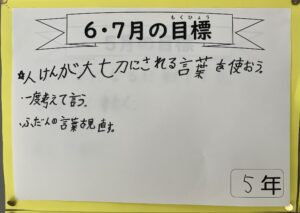 6・7月の目標
もくひょう
☆人けんが大切にされる言葉を使おう。
・一度考えて言う。
・ふだんの言葉を見直す。
5年